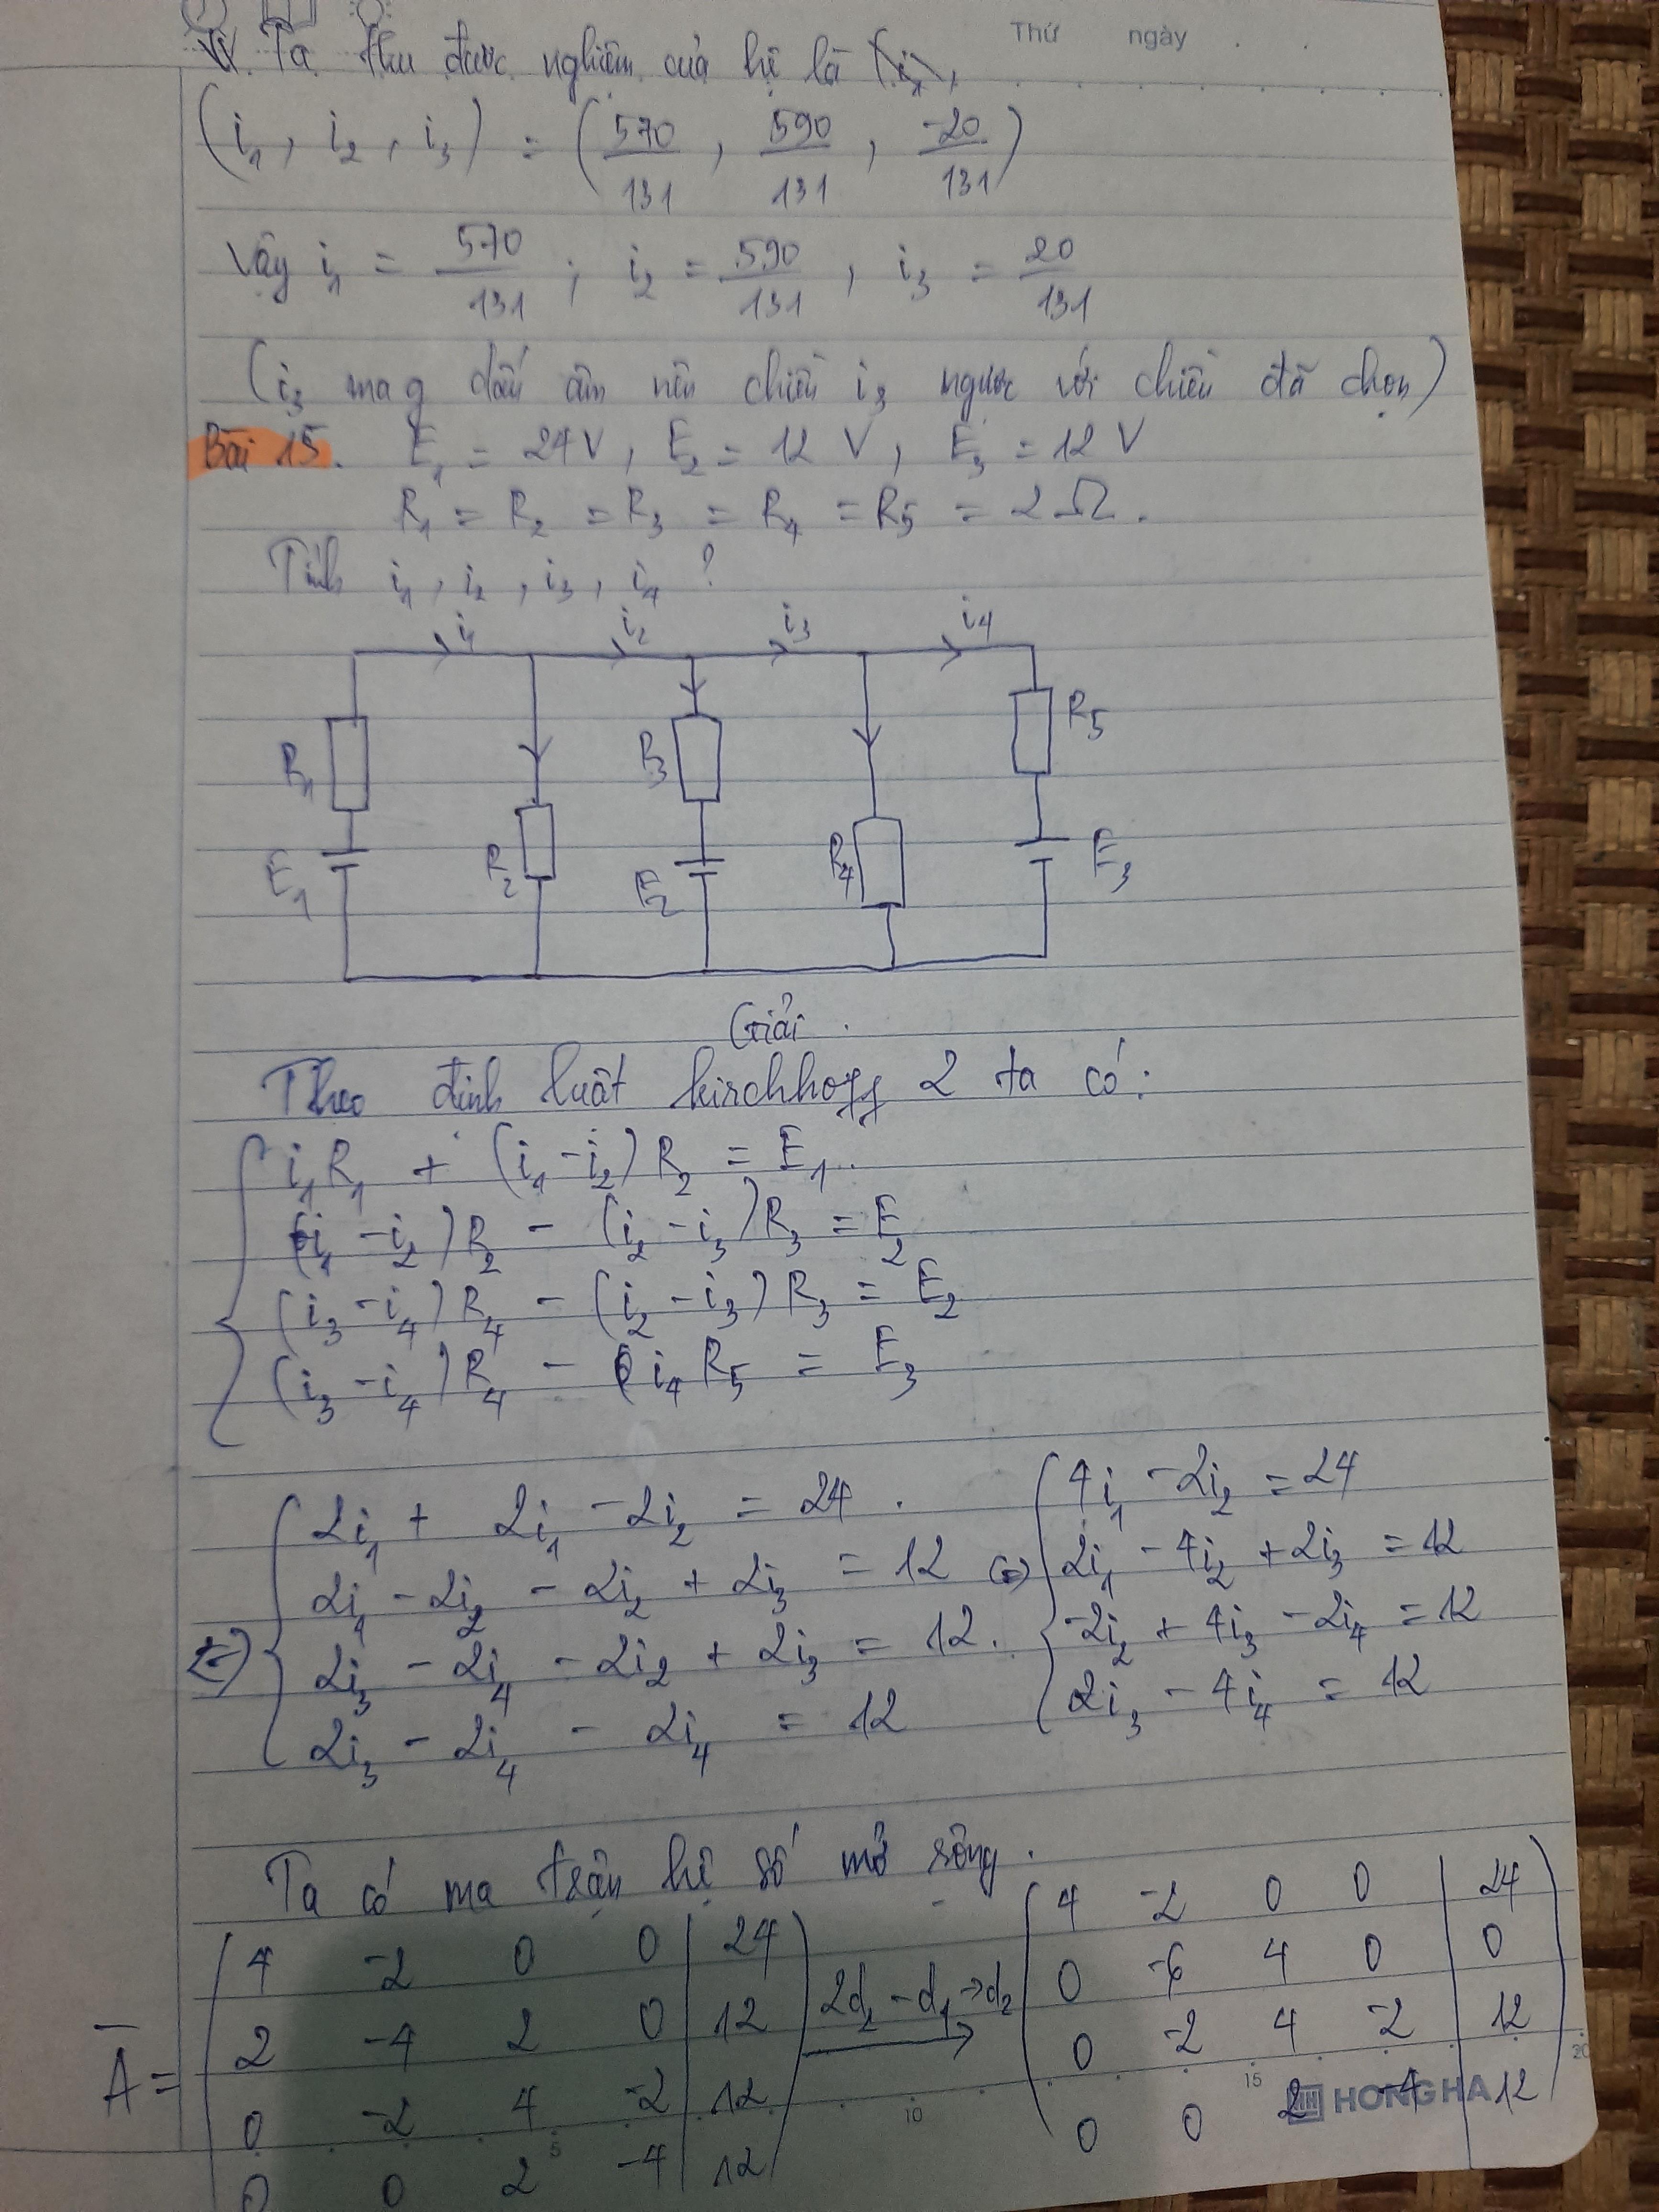 Thứ ngày
Vì. Ta thu được nghiệm của hệ là
(i₁, i₂, i₃) = (570/131, 590/131, -20/131)
Vậy i₁ = 570/131 ; i₂ = 590/131, i₃ = 20/131
(i₃ mag dấu âm nên chiều i₃ ngược với chiều đã chọn)
Bài 15. E₁ = 24V, E₂ = 12 V, E₃ = 12 V
R₁ = R₂ = R₃ = R₄ = R₅ = 2 Ω.
Tính i₁, i₂, i₃, i₄ ?
i₁ i₂ i₃ i₄
R₁ R₃ R₅
E₁ R₂ E₂ R₄ E₃
Giải.
Theo định luật kirchhoff 2 ta có:
i₁R₁ + (i₁ - i₂)R₂ = E₁.
(i₁ - i₂)R₂ - (i₂ - i₃)R₃ = E₂
(i₃ - i₄)R₄ - (i₂ - i₃)R₃ = E₂
(i₃ - i₄)R₄ - i₄R₅ = E₃
2i₁ + 2i₁ - 2i₂ = 24. 4i₁ - 2i₂ = 24
2i₁ - 2i₂ - 2i₂ + 2i₃ = 12 (=) 2i₁ - 4i₂ + 2i₃ = 12
(=) 2i₃ - 2i₄ - 2i₂ + 2i₃ = 12. -2i₂ + 4i₃ - 2i₄ = 12
2i₃ - 2i₄ - 2i₄ = 12 2i₃ - 4i₄ = 12
Ta có ma trận hệ số mở rộng.
4 -2 0 0 | 24 4 -2 0 0 | 24
2 -4 2 0 | 12 2d₂ - d₁ → d₂ 0 -6 4 0 | 0
A̅ = 0 -2 4 -2 | 12 0 -2 4 -2 | 12
0 0 2 -4 | 12 0 0 2 -4 | 12
5 10 15 20
HONG HA